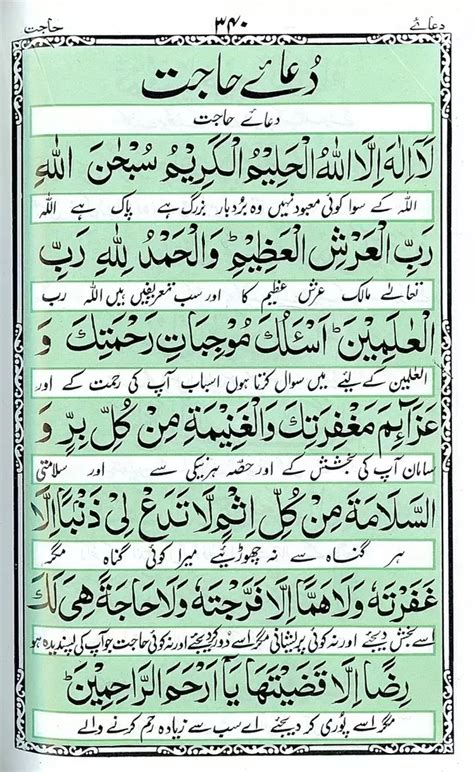 دعائے ۳۴۰ حاجت
دُعائے حاجت
دعائے حاجت
لَآ اِلٰهَ اِلَّا اللّٰهُ الْحَلِيْمُ الْكَرِيْمُ سُبْحٰنَ اللّٰهِ
اللہ کے سوا کوئی معبود نہیں وہ بردبار بزرگ ہے پاک ہے اللہ
رَبِّ الْعَرْشِ الْعَظِيْمِ ؕ وَالْحَمْدُ لِلّٰهِ رَبِّ
تعالےٰ مالک عرش عظیم کا اور سب تعریفیں ہیں اللہ رب
الْعٰلَمِيْنَ ؕ اَسْئَلُكَ مُوْجِبَاتِ رَحْمَتِكَ وَ
العٰلمین کے لیئے میں سوال کرتا ہوں اسباب آپ کی رحمت کے اور
عَزَآئِمَ مَغْفِرَتِكَ وَالْغَنِيْمَةَ مِنْ كُلِّ بِرٍّ وَ
سامان آپ کی بخشش کے اور حصّہ ہر نیکی سے اور سلامتی
السَّلَامَةَ مِنْ كُلِّ اِثْمٍ لَّا تَدَعْ لِىْ ذَنْبًا اِلَّا
ہر گناہ سے نہ چھوڑئیے میرا کوئی گناہ مگر
غَفَرْتَهٗ وَلَا هَمًّا اِلَّا فَرَّجْتَهٗ وَلَا حَاجَةً هِىَ لَكَ
اسے بخش دیجئے اور نہ کوئی پریشانی مگر اسے دور کر دیجئے اور نہ کوئی حاجت جو آپ کی پسندیدہ ہو
رِضًا اِلَّا قَضَيْتَهَا يَآ اَرْحَمَ الرَّاحِمِيْنَ ؕ
مگر اسے پوری کر دیجئے اے سب سے زیادہ رحم کرنے والے